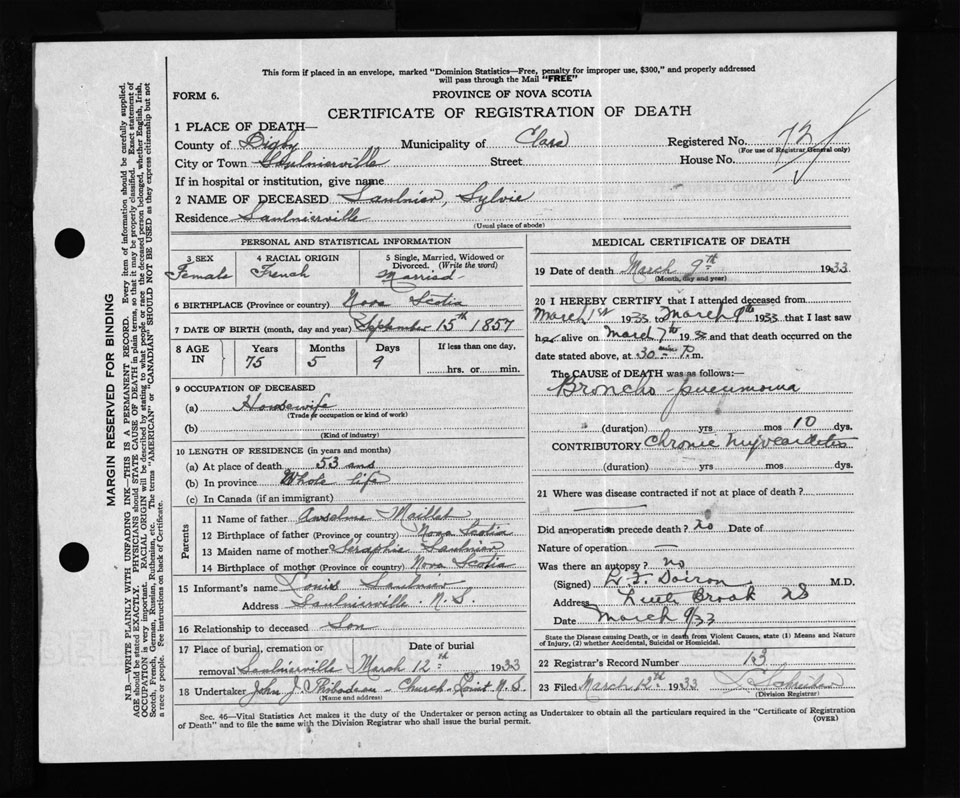 This form if placed in an envelope, marked "Dominion Statistics—Free, penalty for improper use, $300," and properly addressed
will pass through the Mail "FREE"
FORM 6.
PROVINCE OF NOVA SCOTIA
CERTIFICATE OF REGISTRATION OF DEATH
1 PLACE OF DEATH—
County of Digby Municipality of Clare Registered No. 72
(For use of Registrar General only)
City or Town Saulnierville Street House No.
If in hospital or institution, give name
2 NAME OF DECEASED Saulnier, Sylvie
Residence Saulnierville
(Usual place of abode)
PERSONAL AND STATISTICAL INFORMATION
3 SEX Female
4 RACIAL ORIGIN French
5 Single, Married, Widowed or Divorced. (Write the word) Married
6 BIRTHPLACE (Province or country) Nova Scotia
7 DATE OF BIRTH (month, day and year) September 15th 1857
8 AGE IN Years 75 Months 5 Days 9 If less than one day, hrs. or min.
9 OCCUPATION OF DECEASED
(a) Housewife
(Trade or occupation or kind of work)
(b)
(Kind of industry)
10 LENGTH OF RESIDENCE (in years and months)
(a) At place of death 53 ans
(b) In province Whole life
(c) In Canada (if an immigrant)
Parents
11 Name of father Anselme Maillet
12 Birthplace of father (Province or country) Nova Scotia
13 Maiden name of mother Séraphie Saulnier
14 Birthplace of mother (Province or country) Nova Scotia
15 Informant's name Louis Saulnier
Address Saulnierville N.S.
16 Relationship to deceased Son
17 Place of burial, cremation or Date of burial
removal Saulnierville March 12th 1933
18 Undertaker John J. Thibodeau - Church Point N.S.
(Name and address)
MEDICAL CERTIFICATE OF DEATH
19 Date of death March 9th 1933
(Month, day and year)
20 I HEREBY CERTIFY that I attended deceased from
March 1st 1933 to March 9th 1933 that I last saw
her alive on March 7th 19 and that death occurred on the
date stated above, at 30 P.m.
The CAUSE of DEATH was as follows:
Broncho-pneumonia
(duration) yrs mos 10 dys.
CONTRIBUTORY Chronic Myocarditis
(duration) yrs. mos. dys.
21 Where was disease contracted if not at place of death?
Did an operation precede death? no Date of
Nature of operation —
Was there an autopsy? no
(Signed) Doiron M.D.
Address Little Brook NS
Date March 9/33
State the Disease causing Death, or in death from Violent Causes, state (1) Means and Nature
of Injury, (2) whether Accidental, Suicidal or Homicidal.
22 Registrar's Record Number 13
23 Filed March 13th 1933
(Division Registrar)
Sec. 46—Vital Statistics Act makes it the duty of the Undertaker or person acting as Undertaker to obtain all the particulars required in the "Certificate of Registration
of Death" and to file the same with the Division Registrar who shall issue the burial permit.
(OVER)
MARGIN RESERVED FOR BINDING
N.B.—WRITE PLAINLY WITH UNFADING INK—THIS IS A PERMANENT RECORD. Every item of information should be carefully supplied.
AGE should be stated EXACTLY. PHYSICIANS should STATE CAUSE OF DEATH in plain terms, so that it may be properly classified. Exact statement of
OCCUPATION is very important. RACIAL ORIGIN will be described by stating to what people or race the deceased person belonged, whether English, Irish,
Scotch, French, German, Russian, Ruthenian, etc. The terms "AMERICAN" or "CANADIAN" SHOULD NOT BE USED as they express citizenship but not
a race or people. Fee instructions on back of Certificate.